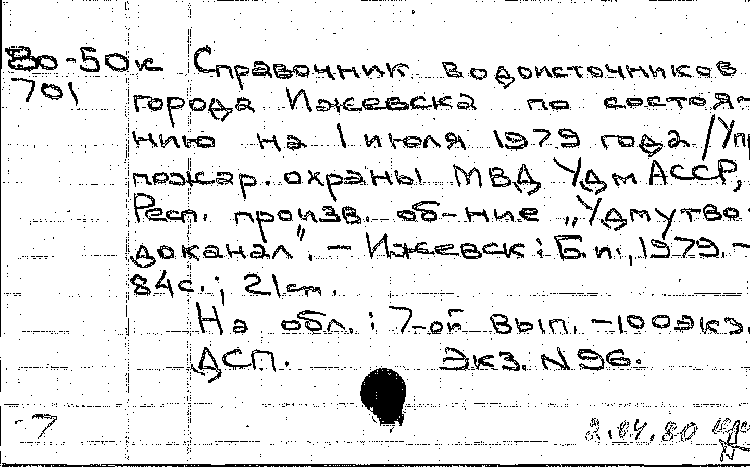 Во-50к Справочник водоисточников
701 города Ижевска по состоя-
нию на 1 июля 1979 года / Упр
пожар. охраны МВД УдмАССР,
Респ. произв. об-ние „Удмутво-
доканал". – Ижевск : Б.и., 1979. –
84с. ; 21см.
На обл. : 7-ой вып. – 100экз.
ДСП. Экз. N 96.
7 2.04.80